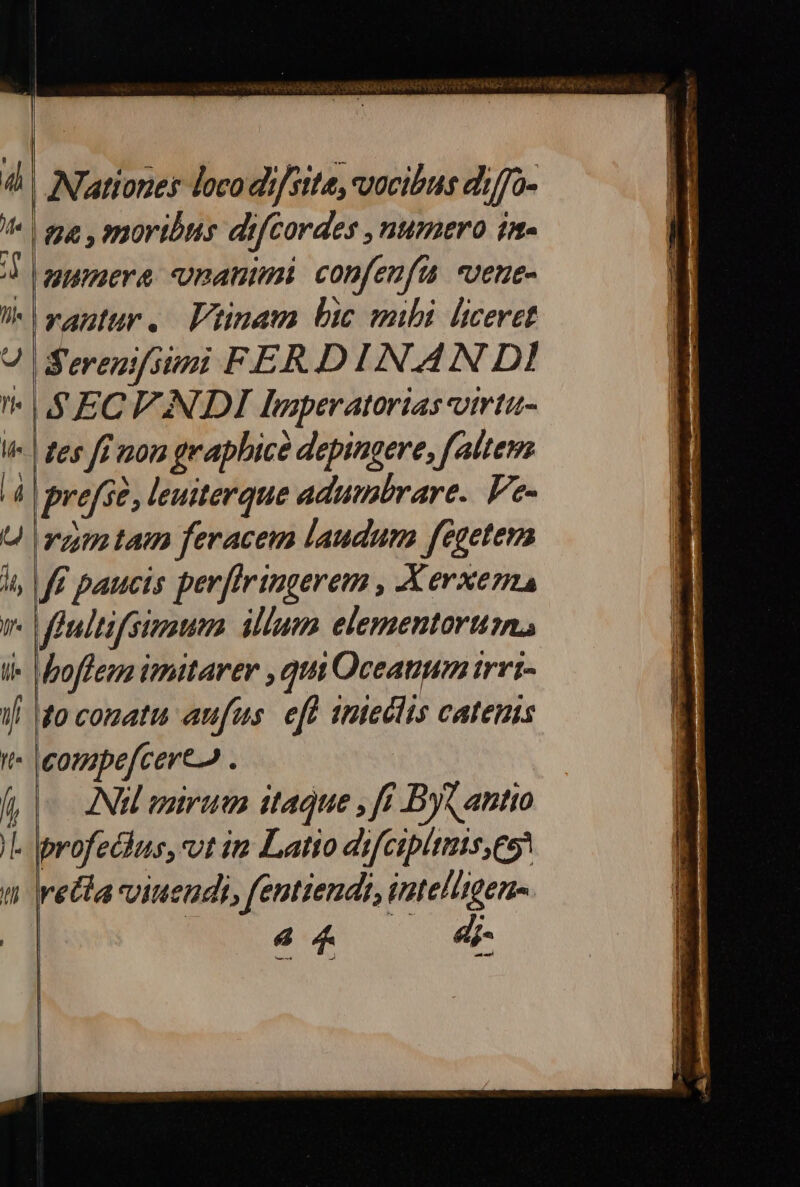 Nationes loco diſsitæ, vocibus diſſo-
næ, moribus diſcordes, numero in-
numeræ vnanimi conſenſu vene-
rantur. Vtinam hic mihi liceret
Sereniſsimi FERDINANDI
SECVNDI Imperatorias virtu-
tes ſi non graphicè depingere, ſaltem
preſsè, leuiterque adumbrare. Ve-
rùm tam feracem laudum ſegetem
ſi paucis perſtringerem, Xerxem
ſtultiſsimum illum elementorum
hoſtem imitarer, qui Oceanum irri-
to conatu auſus eſt iniectis catenis
compeſcere.
Nil mirum itaque, ſi Byzantio
profectus, vt in Latio diſciplinis, &
recta viuendi, ſentiendi, intelligen-
a 4 di-